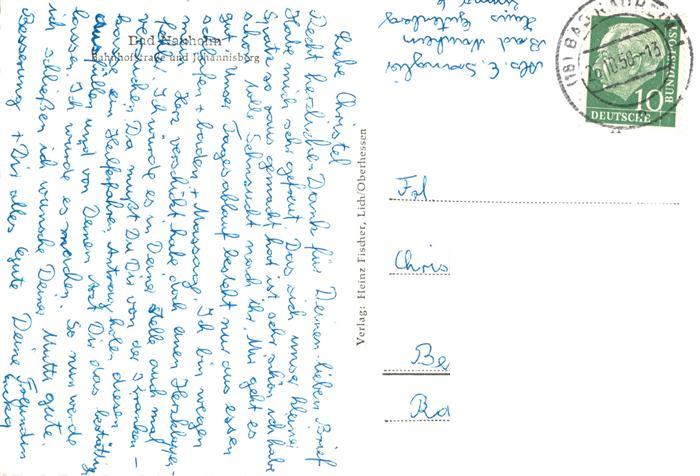 Bad Nauheim
Bahnhofstraße und Johannisberg
Liebe Christel
Recht herzlichen Dank für Deinen lieben Brief
Habe mich sehr gefreut. Das sich unser kleiner
Spatz so raus gemacht hat ist sehr schön, ich habe
schon solle Sehnsucht nach ihr. Mir geht es
gut. Unser Tagesablauf besteht nur aus essen
schlafen + baden + Massage. Ich bin wegen
Herz verschickt habe doch einen Herzklappen-
fehler. Ich würde es in Deiner Stelle auch mal
versuchen. Da mußt Du Dir von der Kranken-
kasse ein Heilverfahren Antrag holen diesen
ausfüllen und von Deinen Arzt Dir das bestätigen
lassen. Ich würde es machen. So nun werde
ich schließen ich wünsche Deiner Mutti gute
Besserung + Dir alles Gute Deine Freundin
Verlag: Heinz Fischer, Lich/Oberhessen
Abs. E.
Bad Nauheim
Haus Gutenberg
(16) BAD NAUHEIM
10.58-13
10
DEUTSCHE
BUNDESPOST
Frl
Chris
Be
Ra